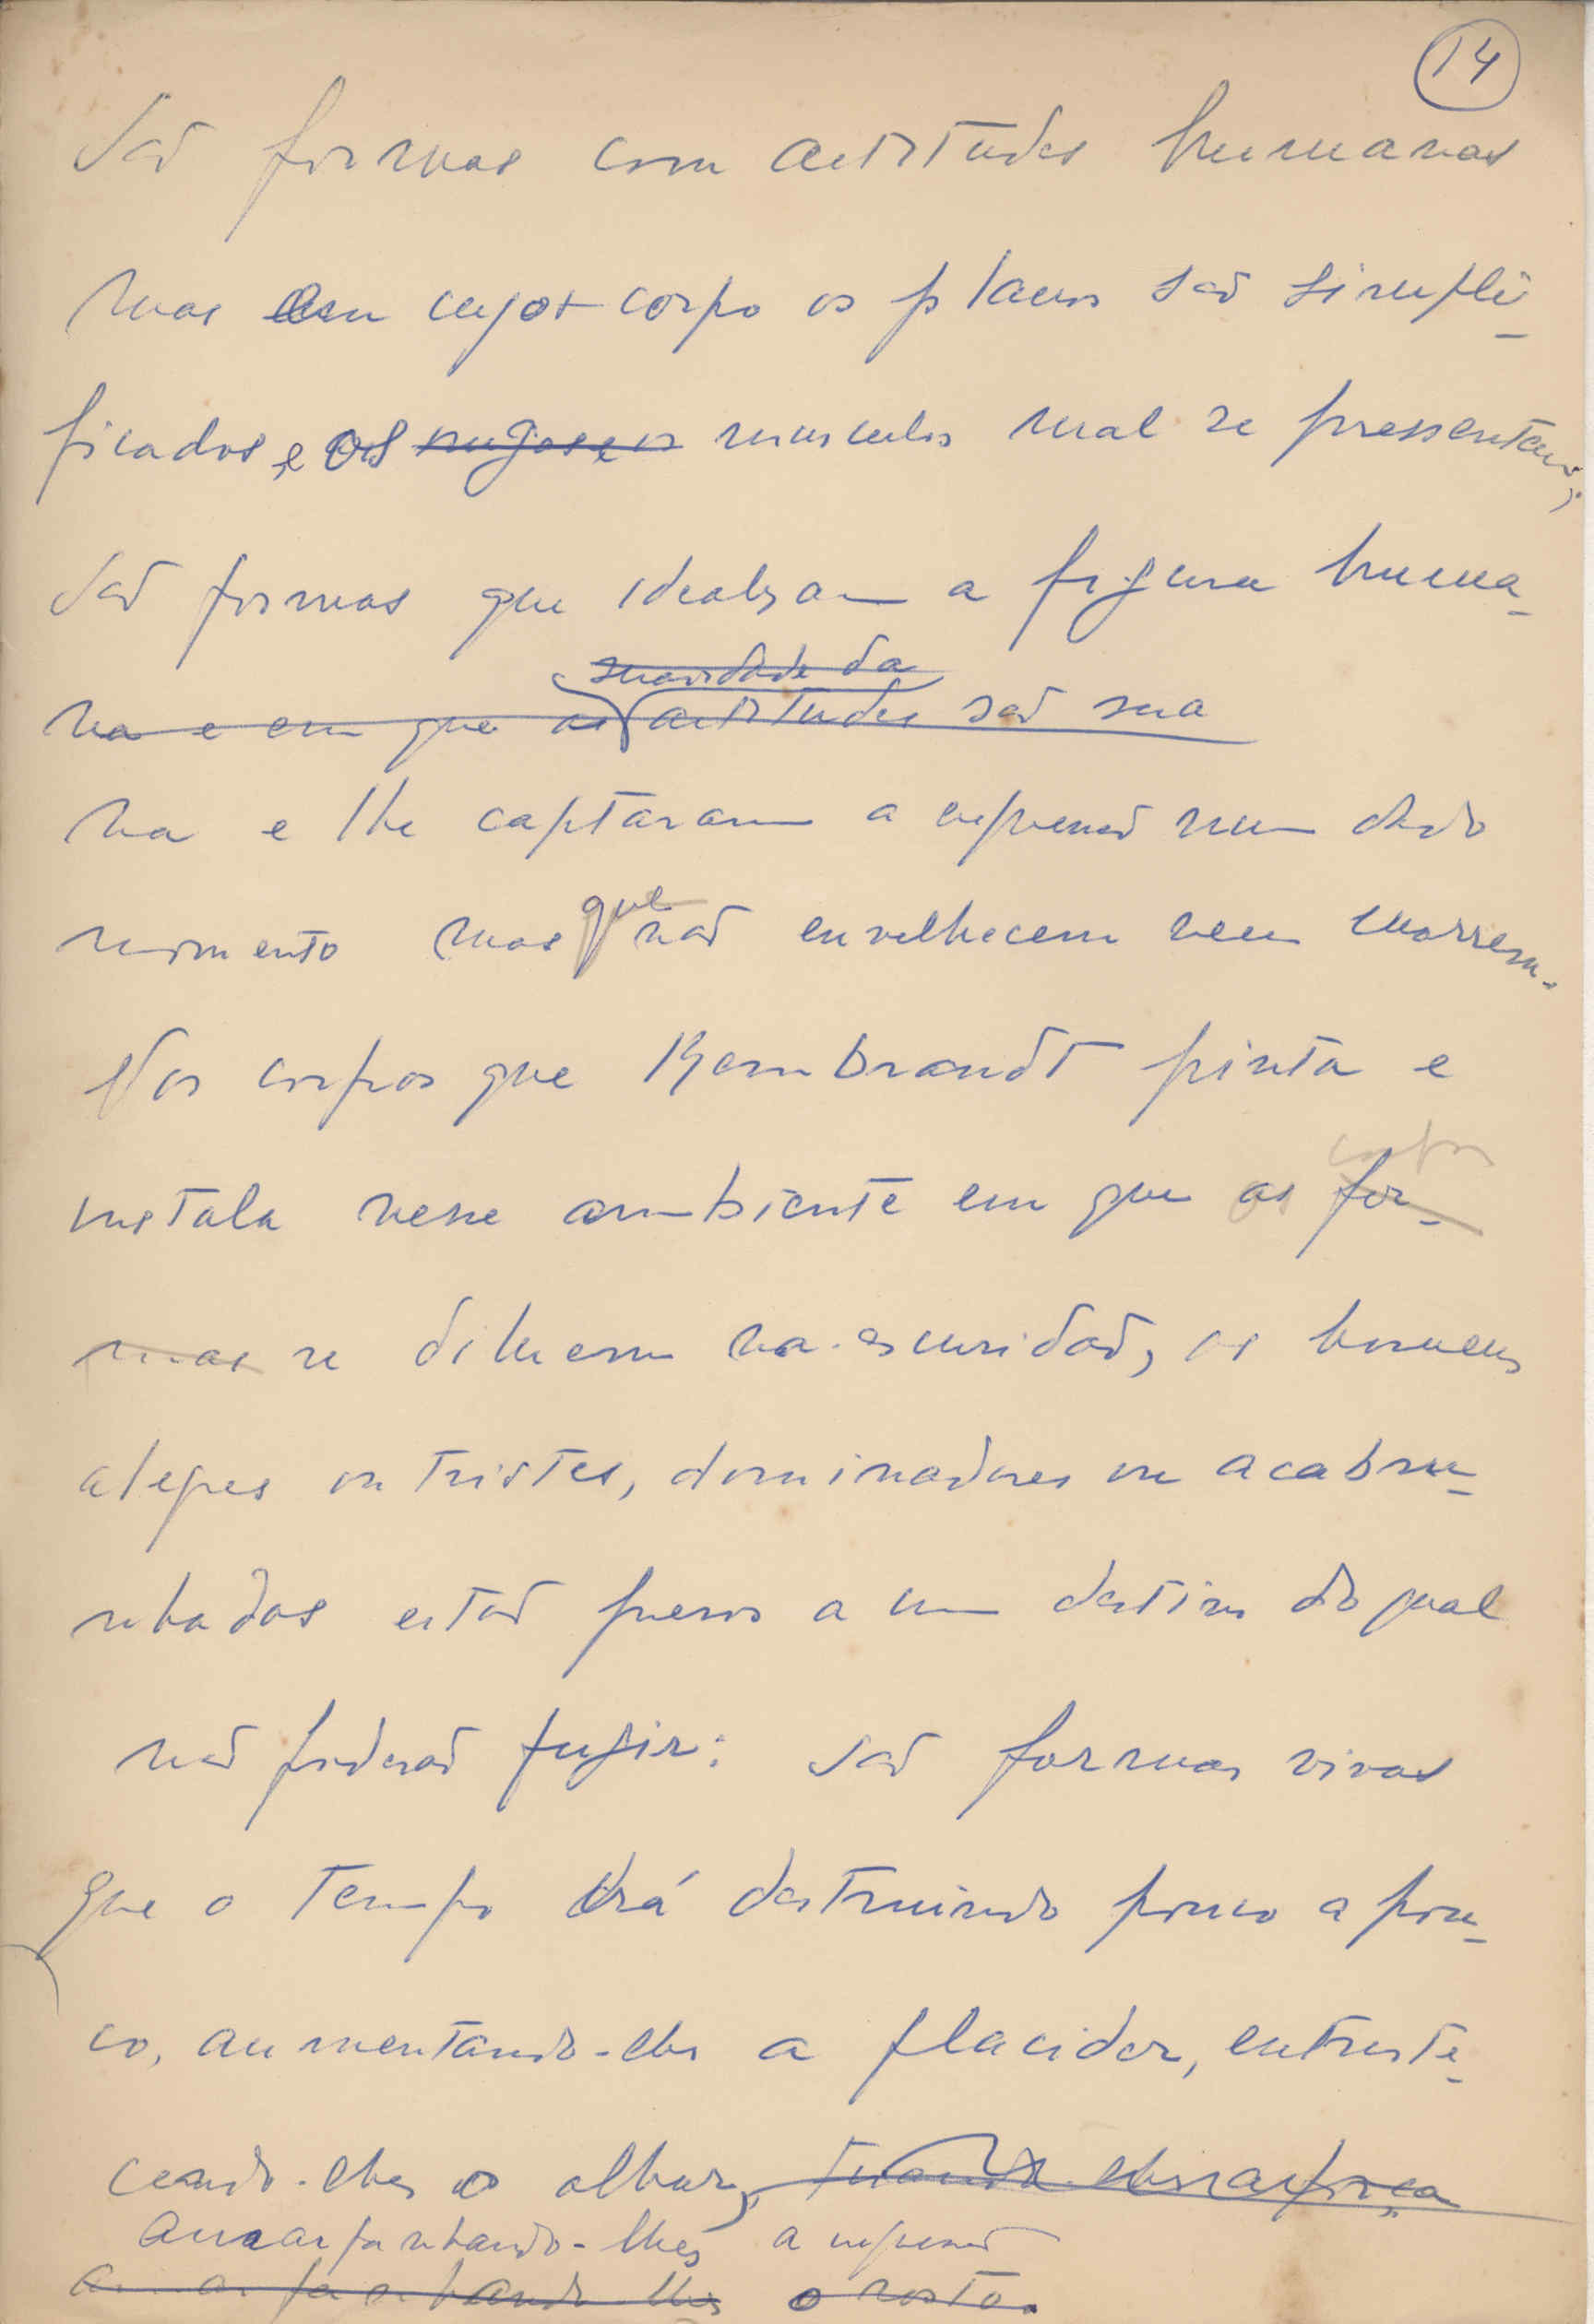 14
São formas com actitudes humanas
mas em cujo corpo os planos são simpli-
ficados, e os rugas e os musculos mal se pressentem;
São formas que idealizam a figura huma-
suavidade da
na e em que as actitudes são sua
na e lhe captaram a expressão num dado
momento mas que não envelhecem nem morrem.
Nos corpos que Rembrandt pinta e
corpos
instala nesse ambiente em que os for-
mas se diluem na escuridão, os homens
alegres ou tristes, dominadores ou acabru-
nhados estão presos a um destino do qual
não poderão fugir: são formas vivas
que o tempo irá destruindo pouco a pou-
co, aumentando-lhes a flacidez, entriste-
cendo-lhes o olhar, tirando-lhes a força
amarfanhando-lhes a expressão
amarfanhando-lhes o rosto.